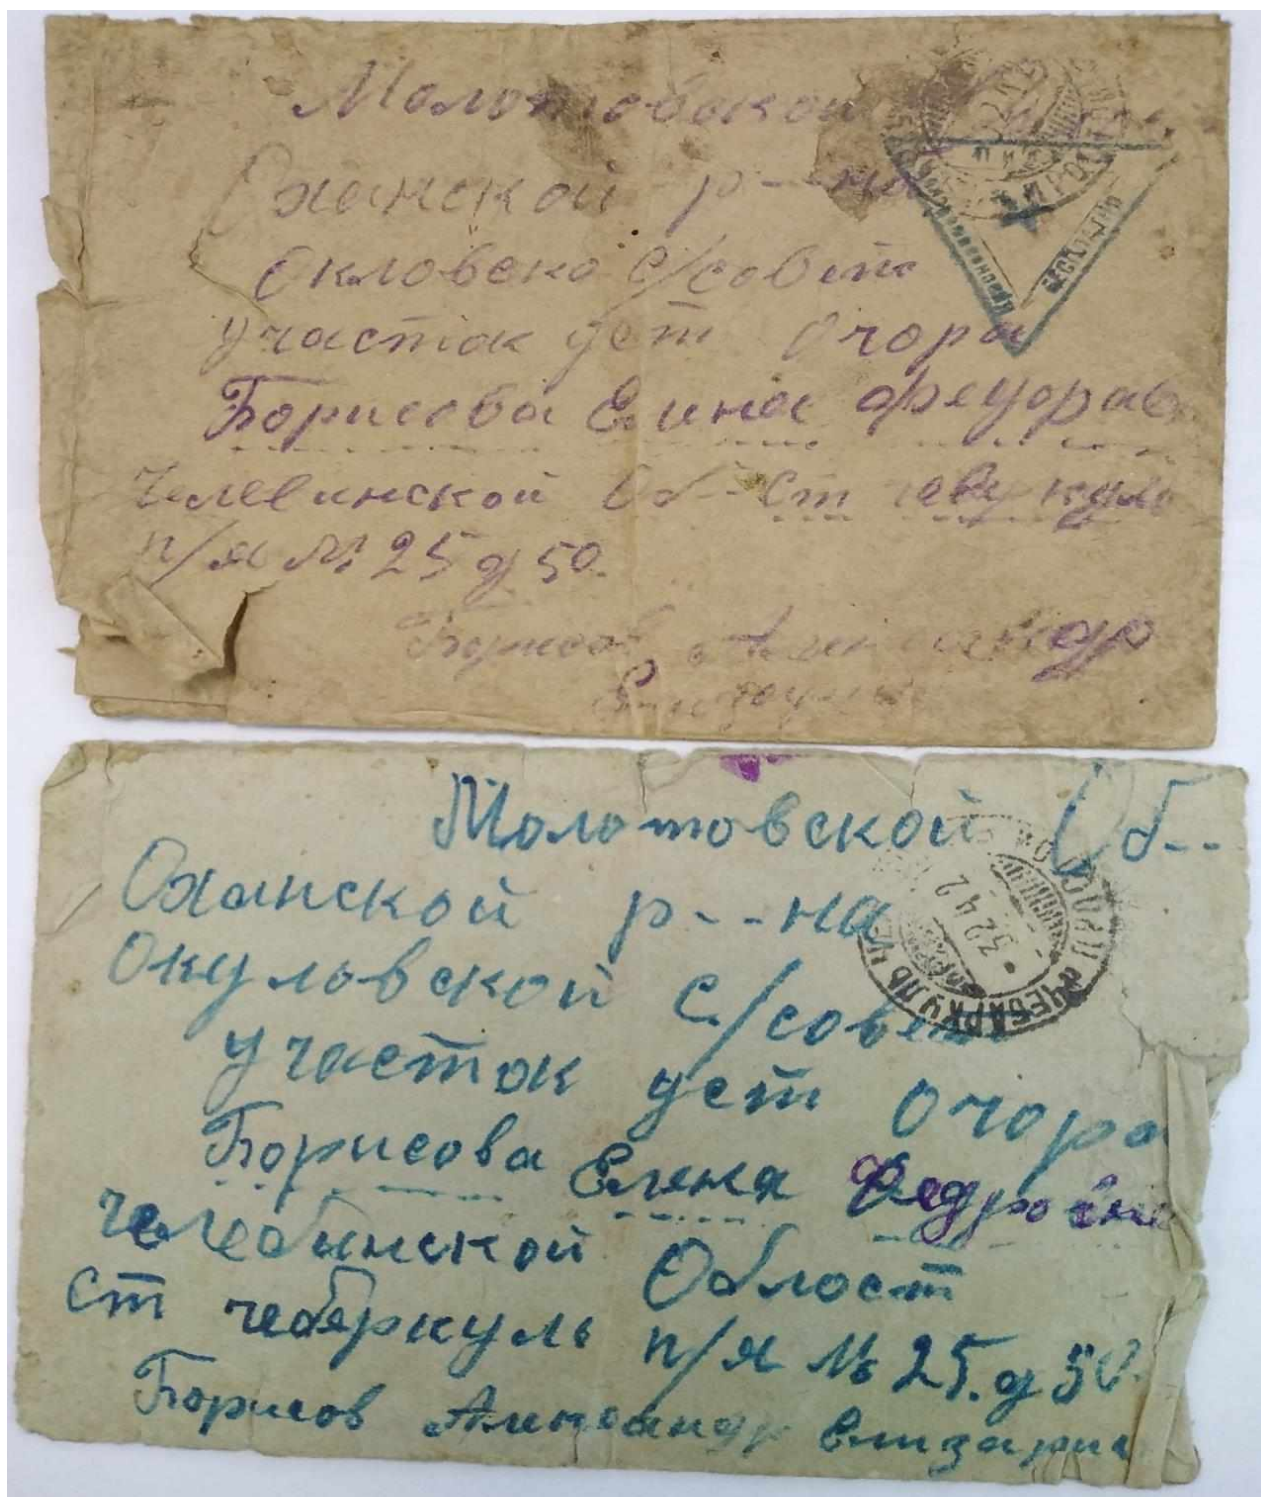 Молотовской
Оханской р--на
Окловско с/совет
участок уст Очора
Борисова Елина Федоров
п/я № 25 д 50.
Борисов Александр
БЕСПЛАТНО
Молотовской Об--
Оханской р--на
Окуловской с/совет
участок уст Очора
Борисова Елена Федровна
Челебинской Област
ст чеберкуль п/я № 25. д 50.
Борисов Александр Елизарич
ЧЕБАРКУЛЬ
3 2 42